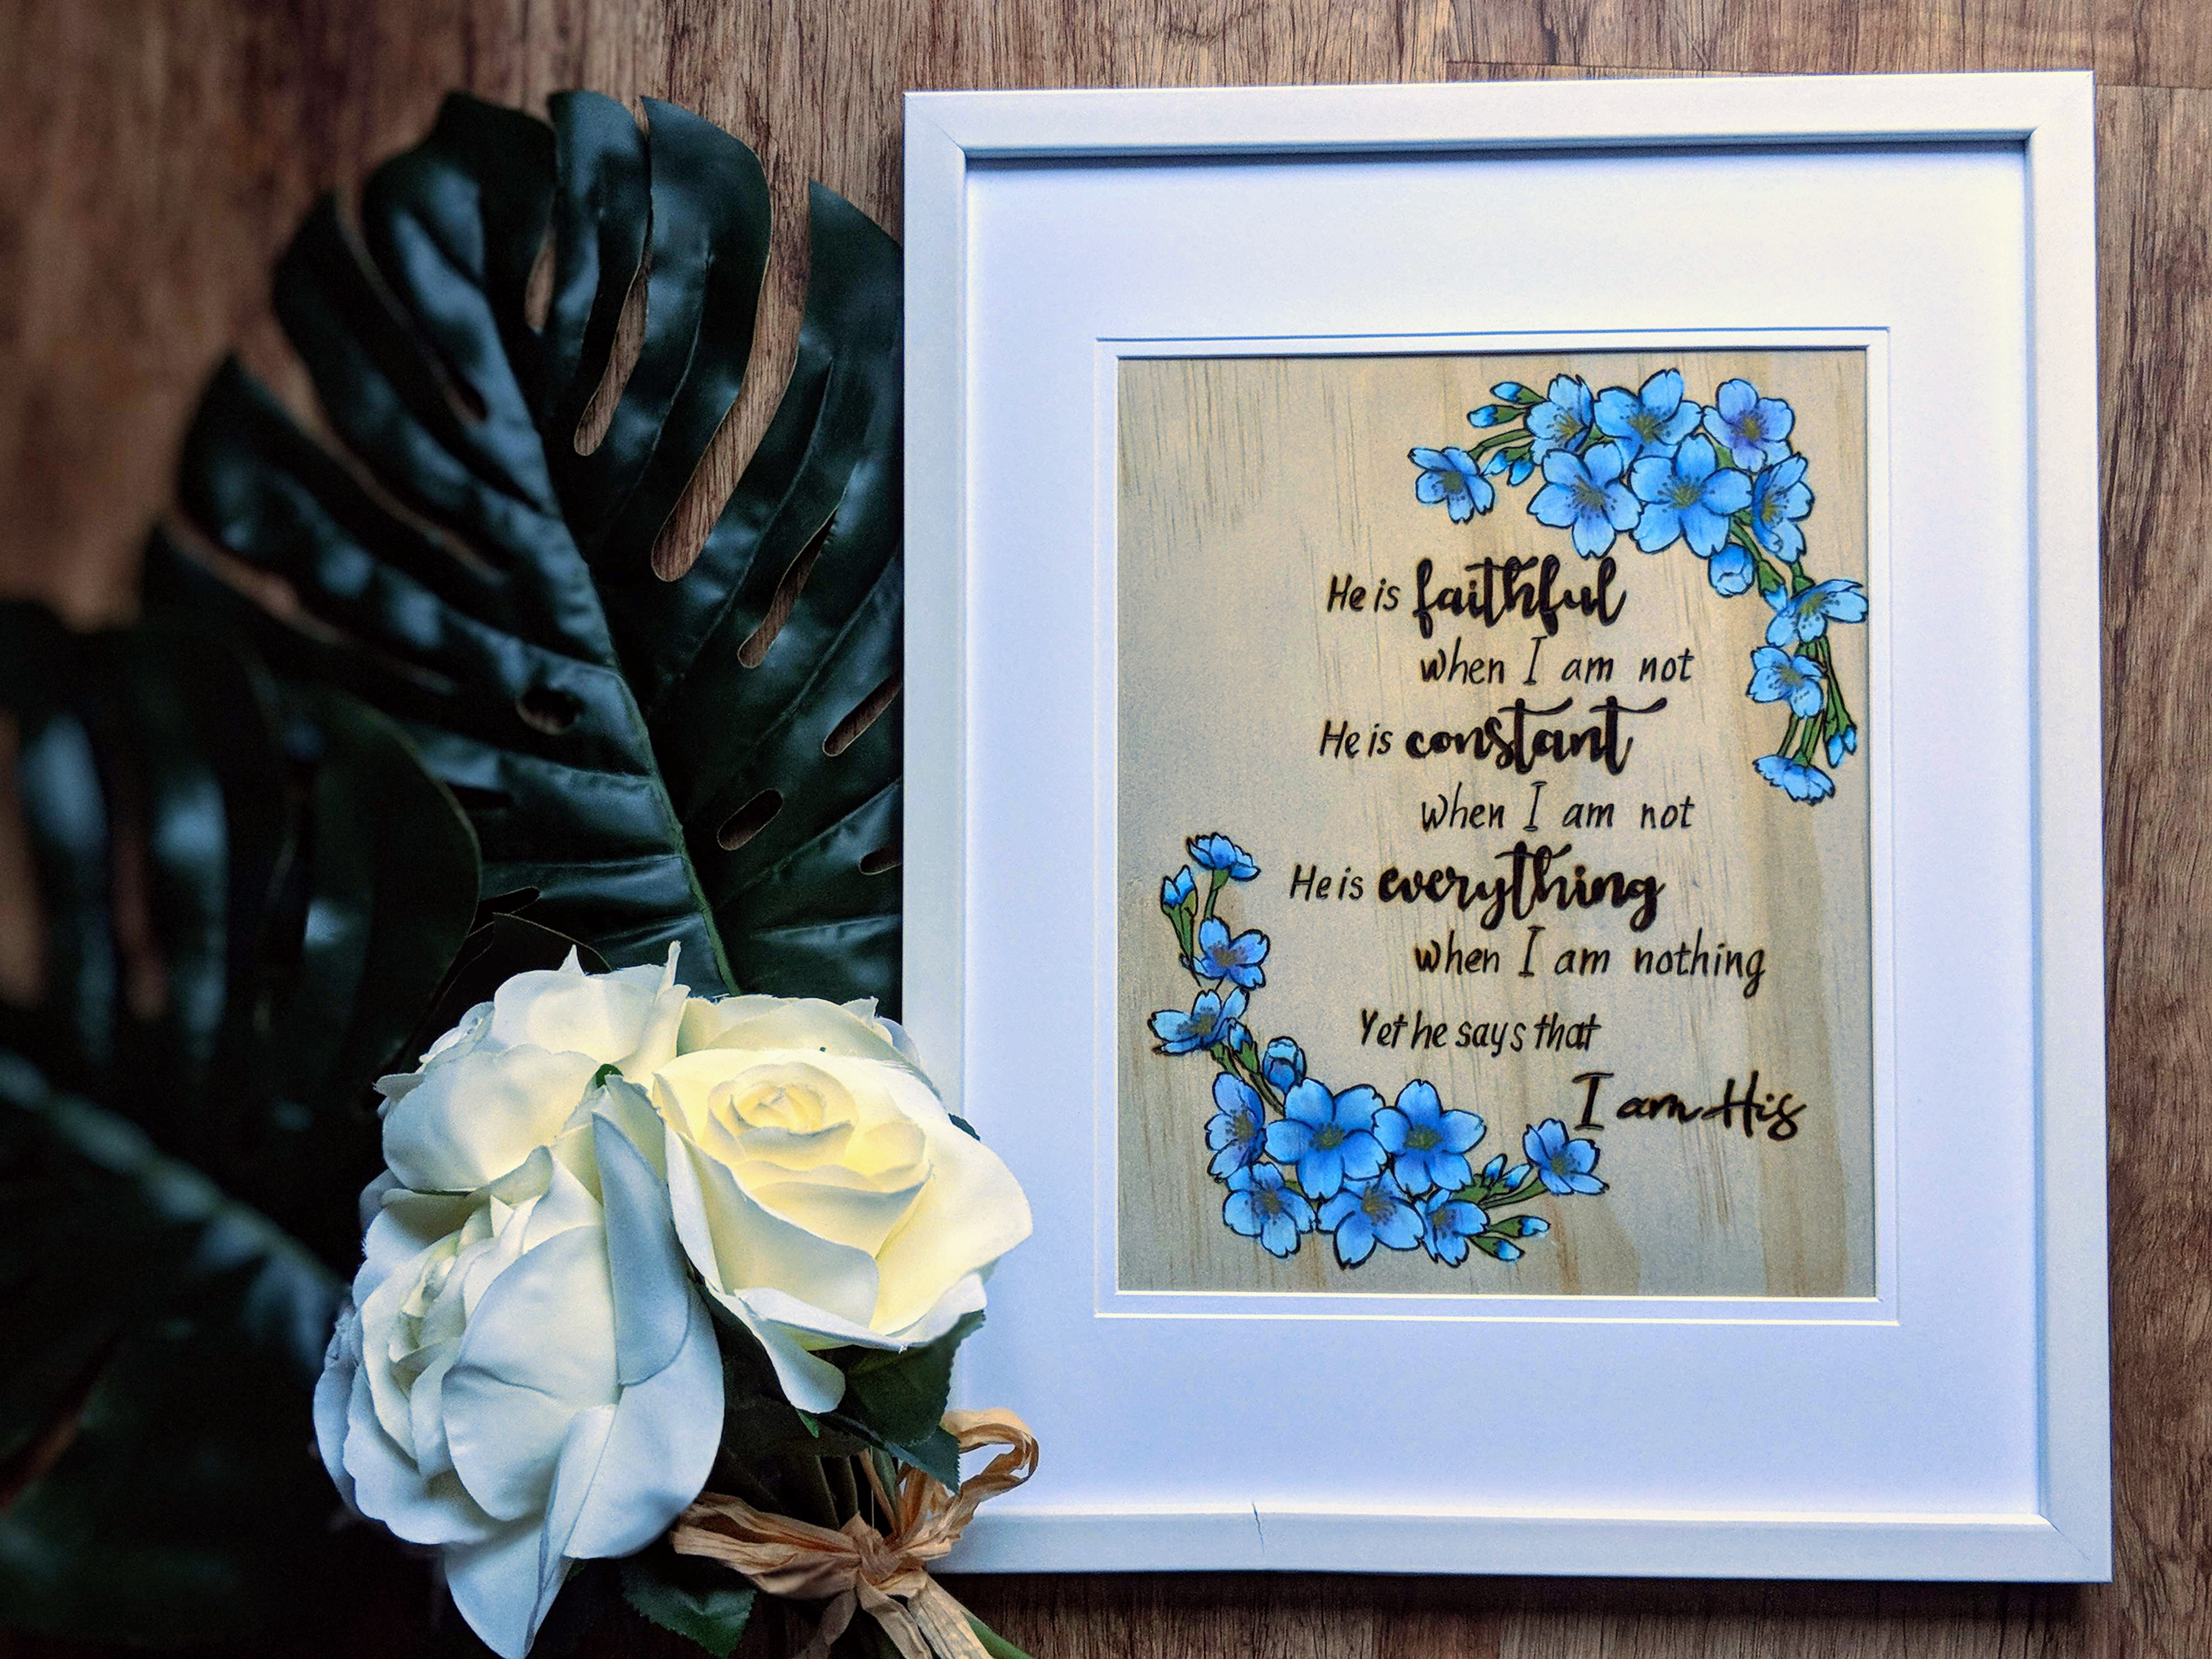 He is faithful
when I am not
He is constant
when I am not
He is everything
when I am nothing
Yet he says that
I am His